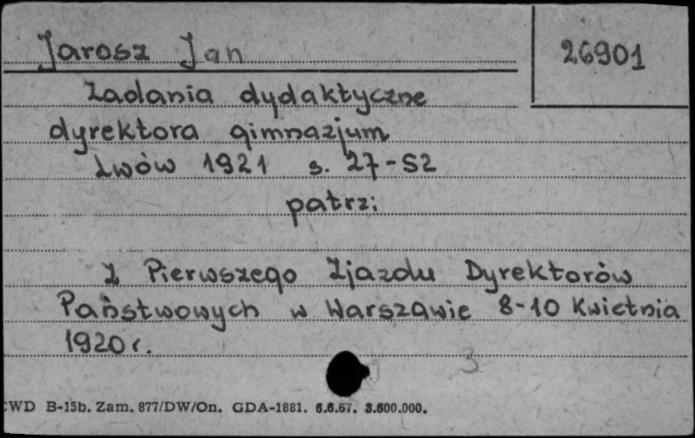 Jarosz Jan
26901
Zadania dydaktyczne
dyrektora gimnazjum
Lwów 1921 s. 27-52
patrz:
Z Pierwszego Zjazdu Dyrektorów
Państwowych w Warszawie 8-10 Kwietnia
1920 r.
3
CWD B-15b. Zam. 877/DW/On. GDA-1881. 6.6.67. 3.600.000.